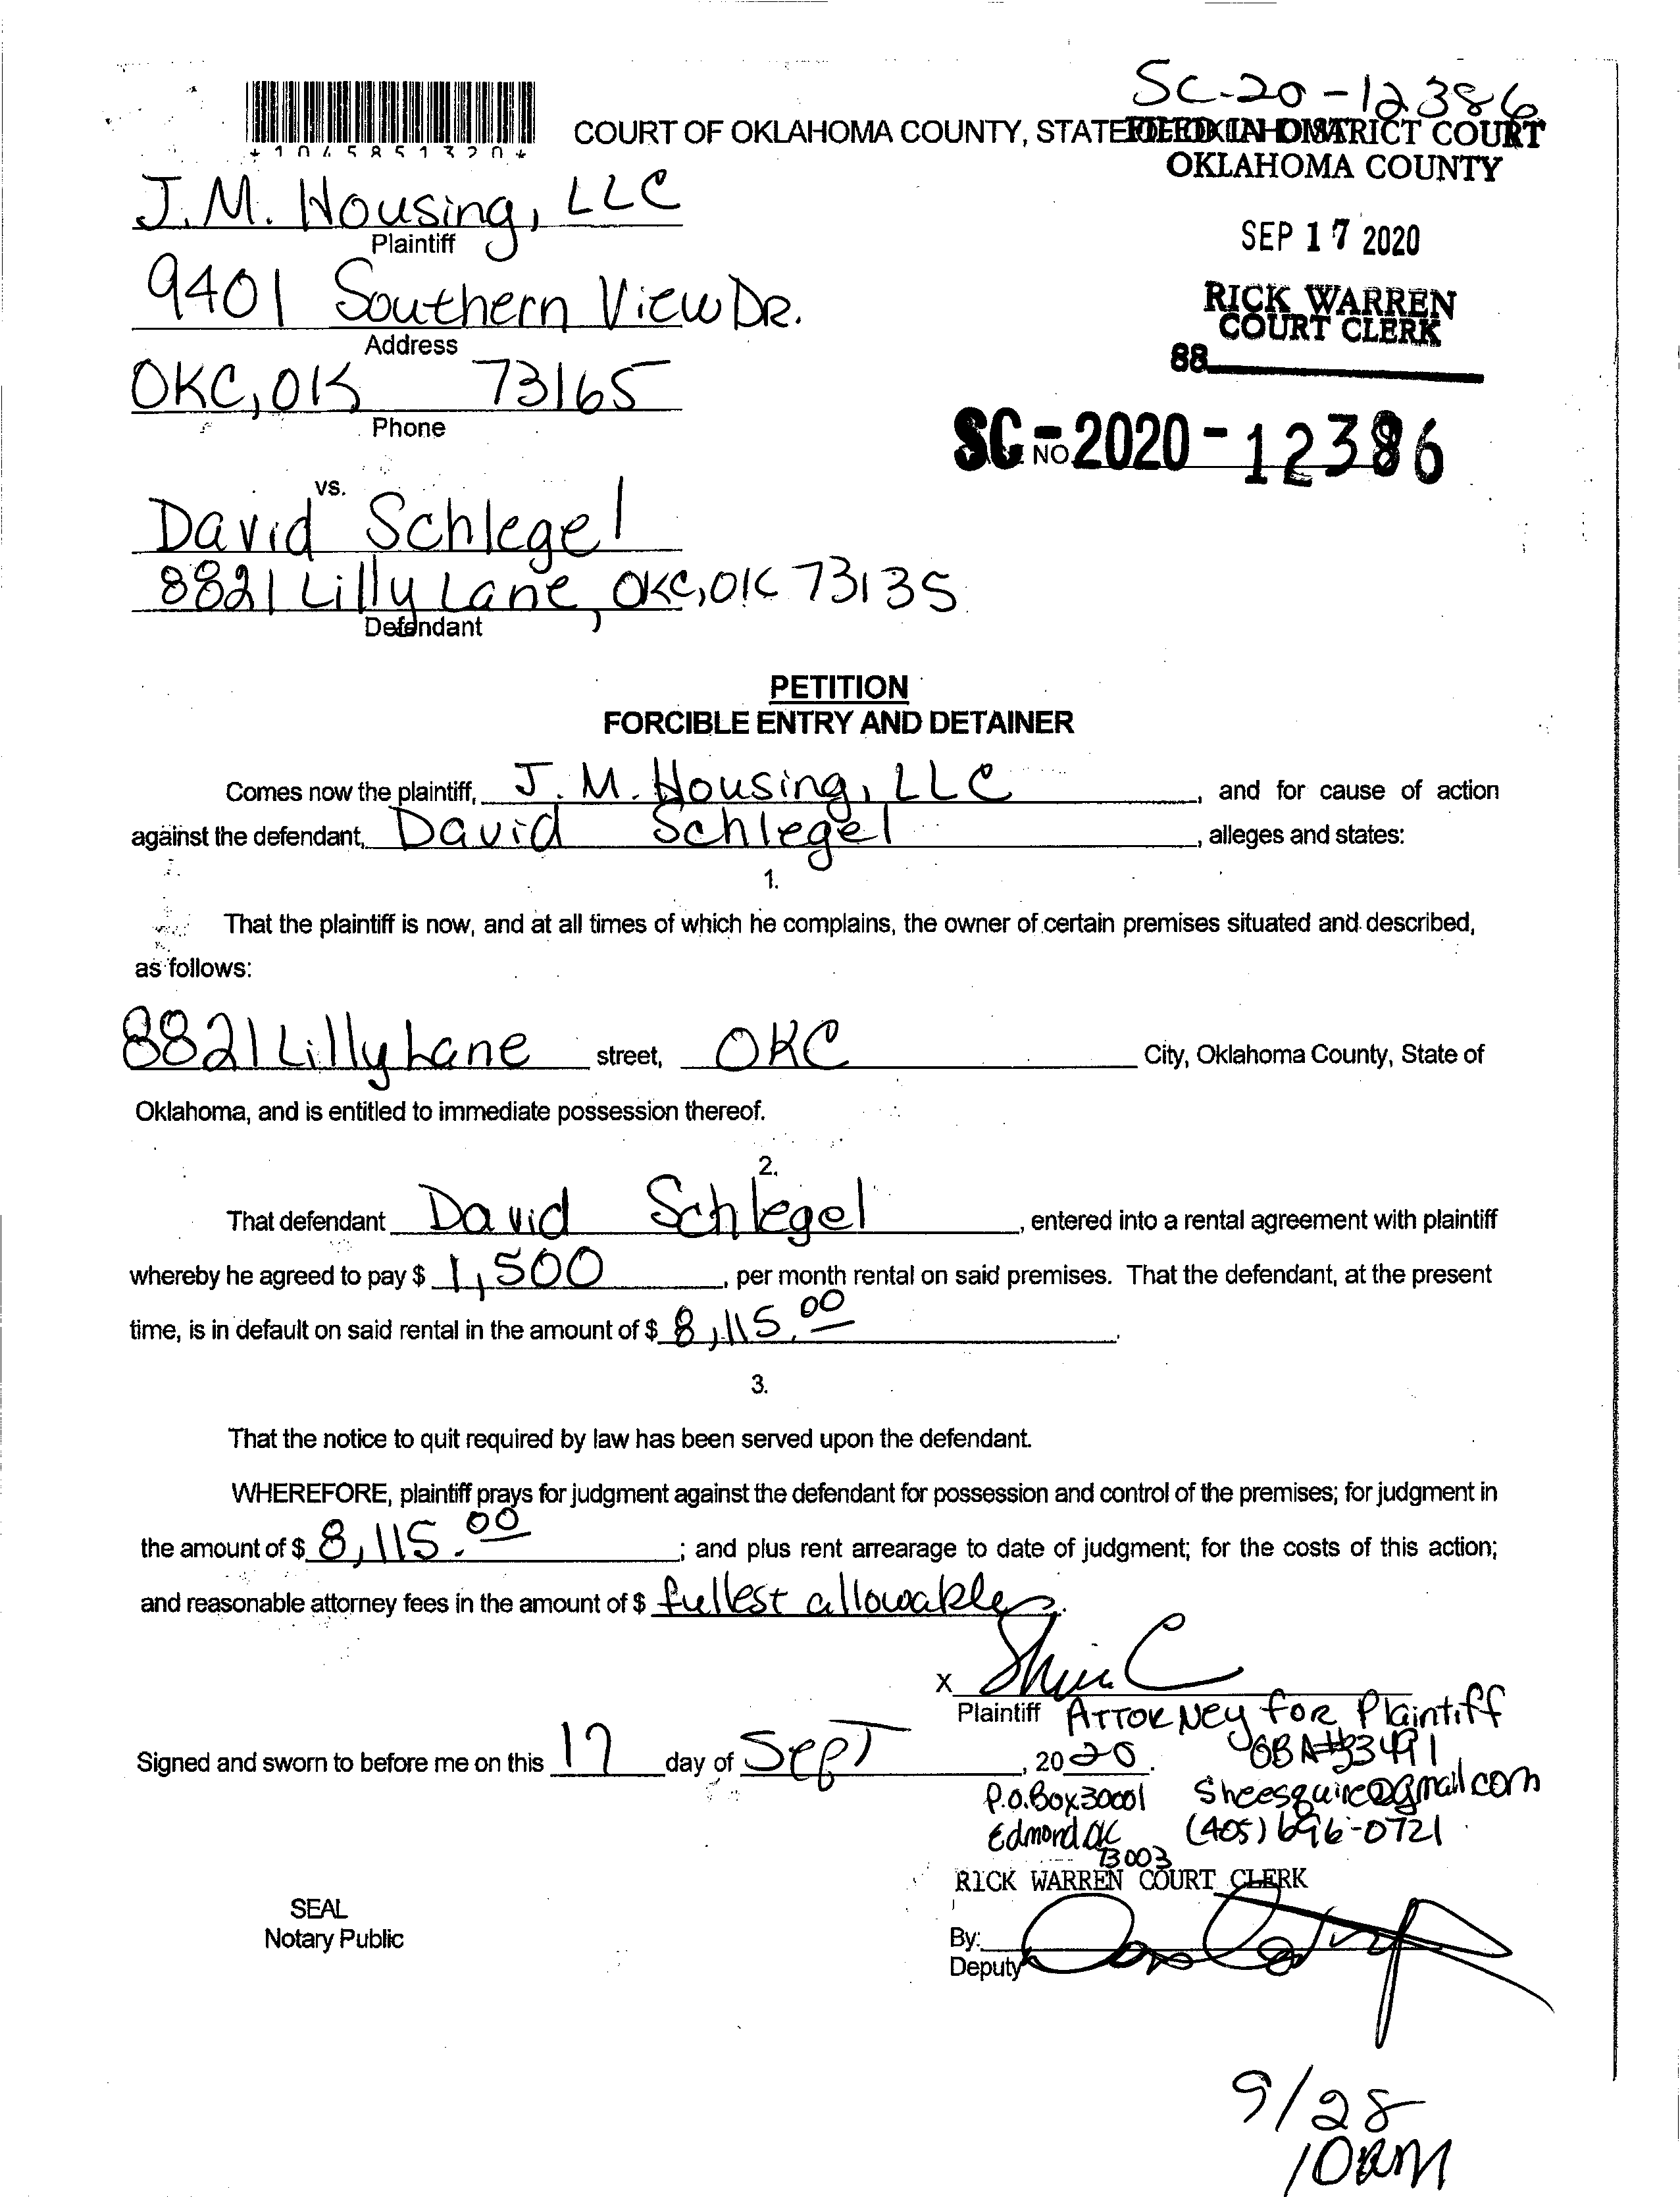 SC-20-12386
COURT OF OKLAHOMA COUNTY, STATE
FILED IN DISTRICT COURT
OKLAHOMA COUNTY
*1045851320*
J.M. Housing, LLC
Plaintiff
SEP 17 2020
9401 Southern View DR.
Address
RICK WARREN
COURT CLERK
88
OKC, OK 73165
Phone
SC-2020-12386
NO
vs.
David Schlegel
8821 Lilly Lane, OKC, OK 73135
Defendant
PETITION
FORCIBLE ENTRY AND DETAINER
Comes now the plaintiff, J. M. Housing, LLC, and for cause of action
against the defendant, David Schlegel, alleges and states:
1.
That the plaintiff is now, and at all times of which he complains, the owner of certain premises situated and described,
as follows:
8821 Lilly Lane street, OKC City, Oklahoma County, State of
Oklahoma, and is entitled to immediate possession thereof.
2.
That defendant David Schlegel, entered into a rental agreement with plaintiff
whereby he agreed to pay $ 1,500, per month rental on said premises. That the defendant, at the present
time, is in default on said rental in the amount of $ 8,115.00.
3.
That the notice to quit required by law has been served upon the defendant.
WHEREFORE, plaintiff prays for judgment against the defendant for possession and control of the premises; for judgment in
the amount of $ 8,115.00; and plus rent arrearage to date of judgment; for the costs of this action;
and reasonable attorney fees in the amount of $ fullest allowable.
X
Plaintiff Attorney for Plaintiff
OBA#33491
Signed and sworn to before me on this 17 day of Sept, 2020.
P.O. Box 30001 sheesquire@gmail.com
Edmond OK (405) 696-0721
73003
RICK WARREN COURT CLERK
SEAL
Notary Public
By:
Deputy
9/28
10am